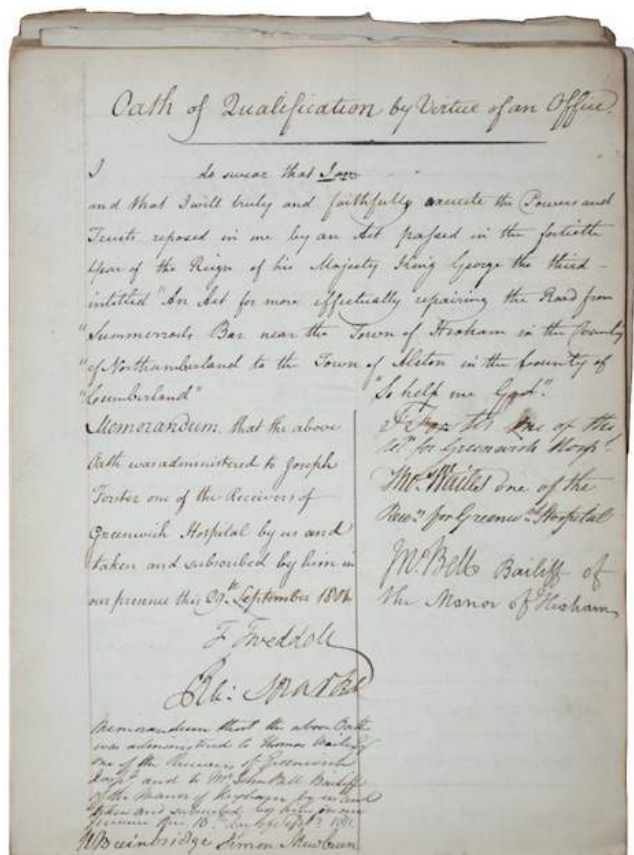 Oath of Qualification by Virtue of an Office.
I do swear that I am
and that I will truly and faithfully execute the Powers and
Trusts reposed in me by an Act passed in the fortieth
Year of the Reign of his Majesty King George the third
intitled "An Act for more effectually repairing the Road from
"Summerrods Bar near the Town of Hexham in the County
"of Northumberland to the Town of Alston in the County of
"Cumberland" "So help me God".
Memorandum that the above
Oath was administered to Joseph
Forster one of the Receivers of
Greenwich Hospital by us and
taken and subscribed by him in
our presence this 29th September
F Tweddell
Memorandum that the above Oath
was administered to Thomas Wailes
one of the Receivers of Greenwich
Hospl and to Mr John Bell Bailiff
of the Manor of Hexham by us and
taken and subscribed by them in our
presence this 10th day of
Bainbridge Simon Mewburn
one of the
for Greenwich Hospl
Thos Wailes one of the
Recrs for Greenwch Hospital
Jno Bell Bailiff of
the Manor of Hexham